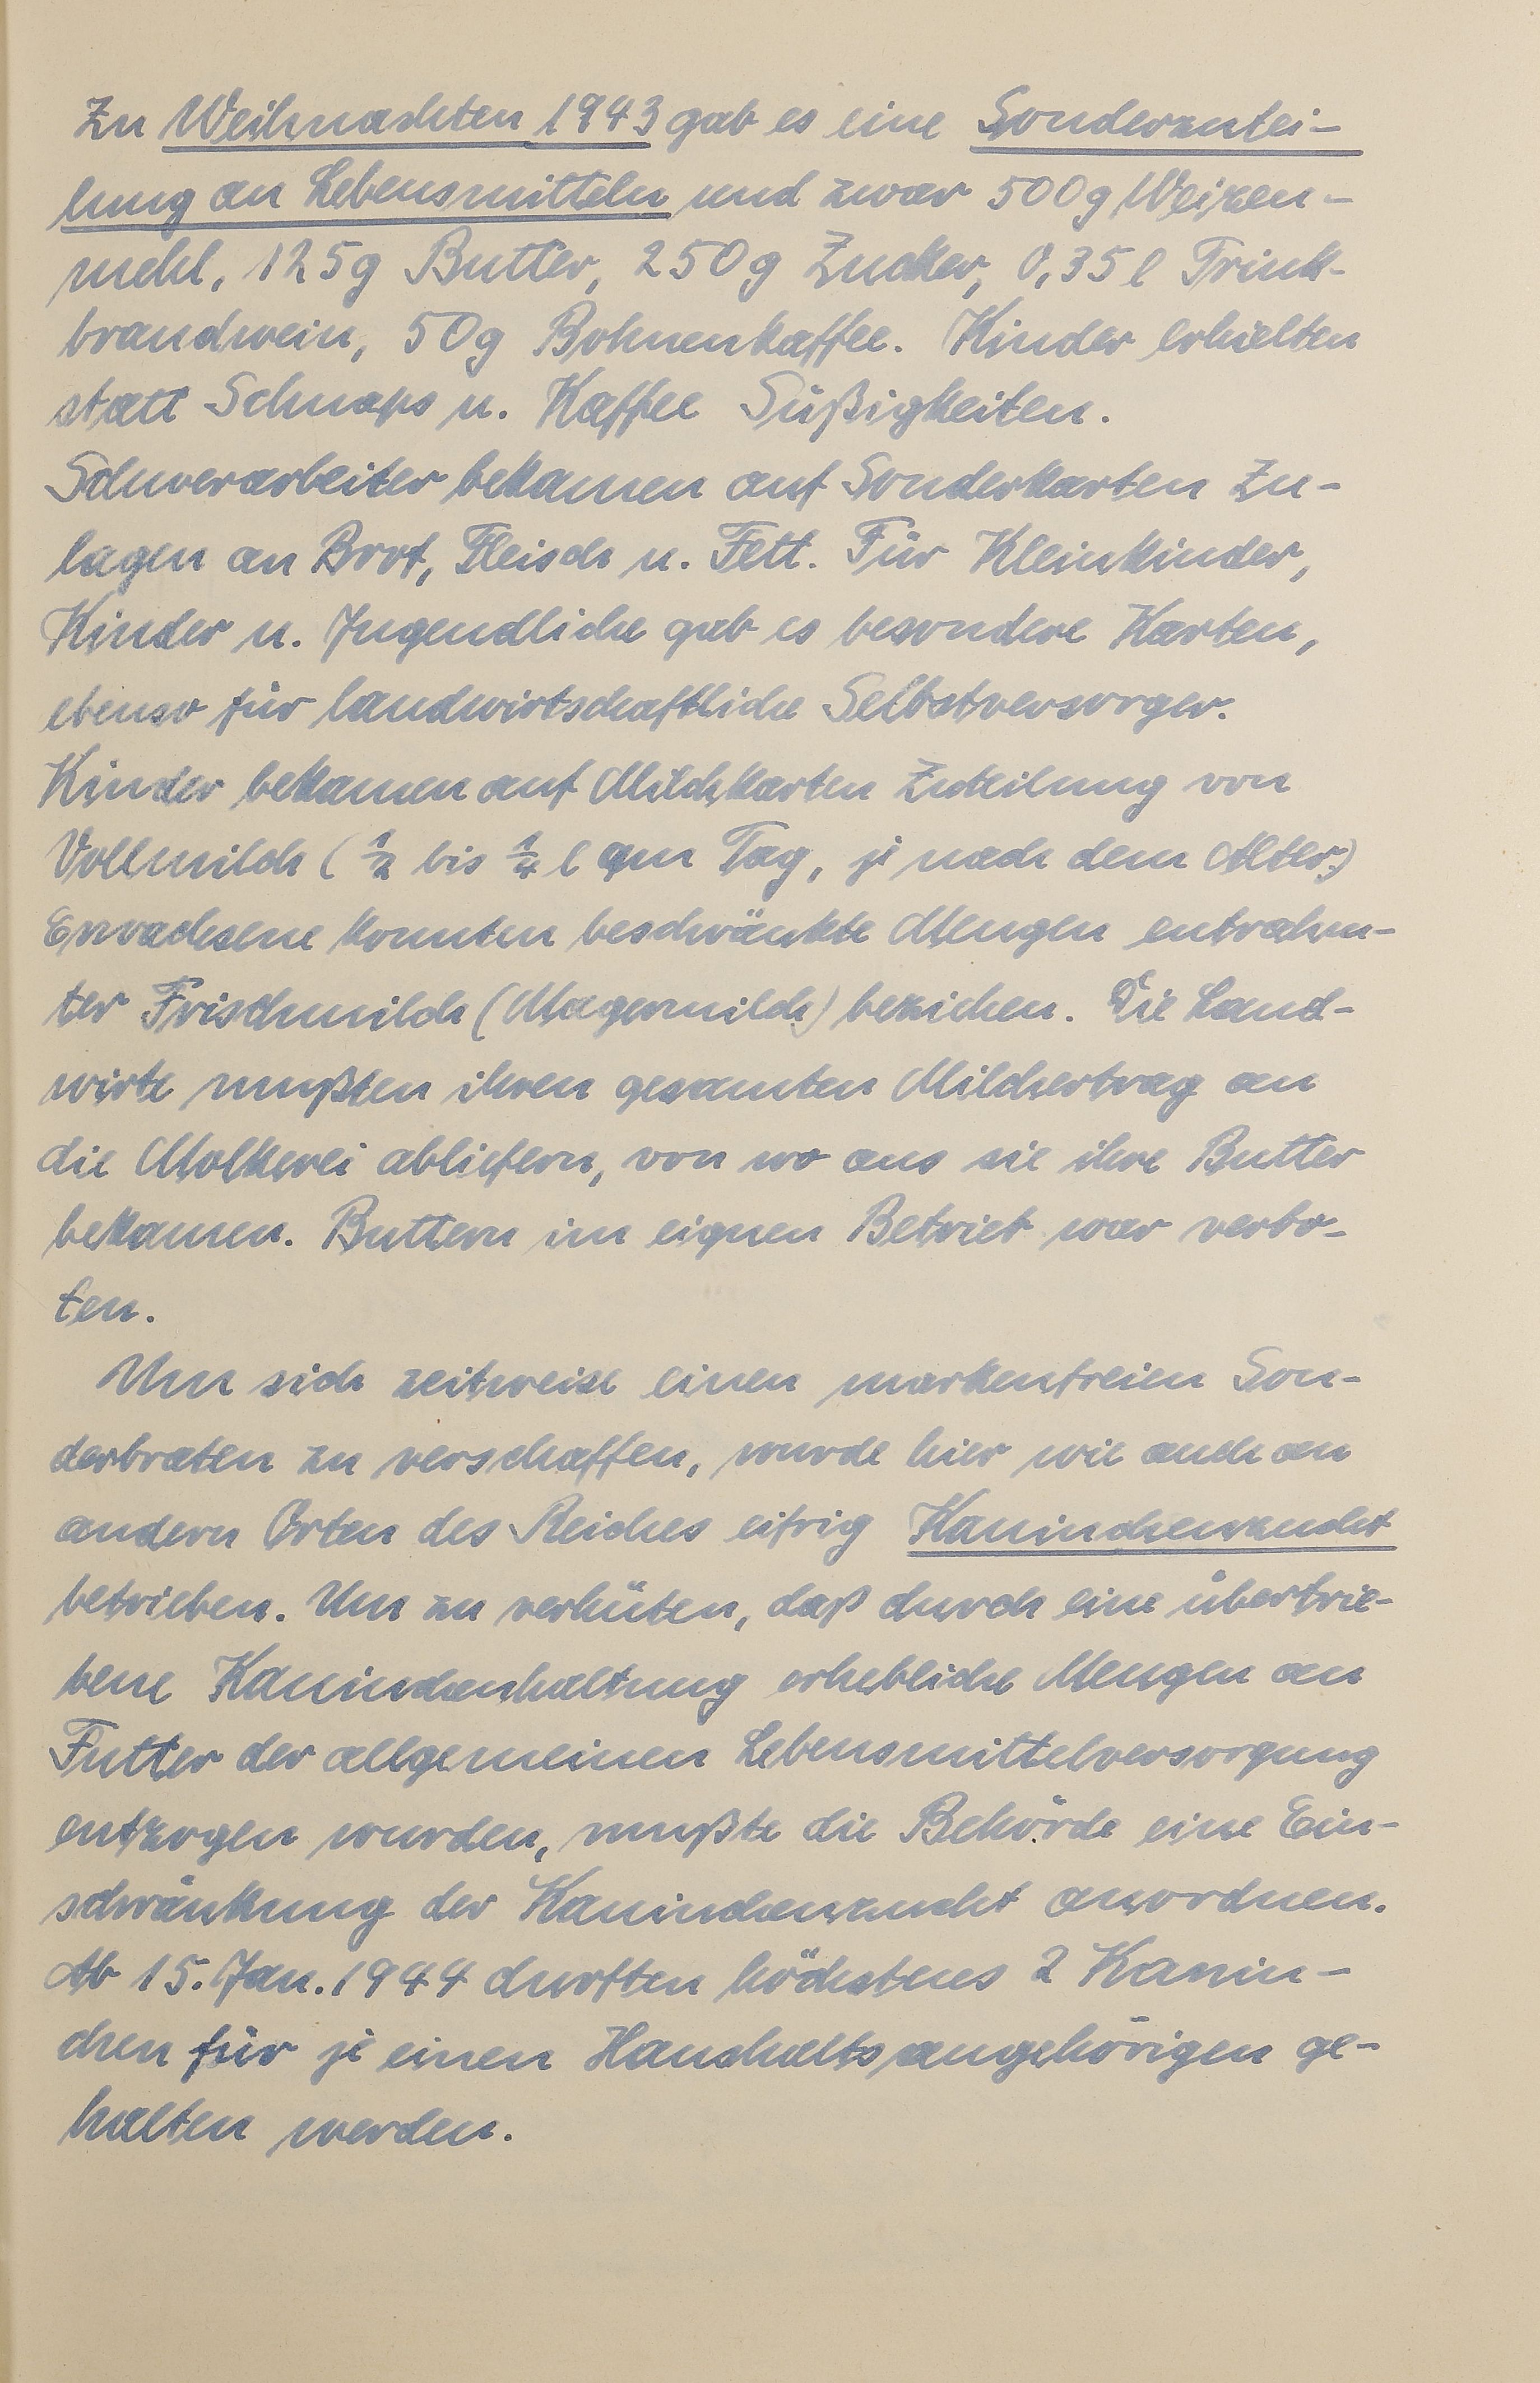 Zu Weihnachten 1943 gab es eine Sonderzutei-
lung an Lebensmitteln und zwar 500g Weizen-
mehl, 125g Butter, 250g Zucker, 0,35 l Trink-
brandwein, 50g Bohnenkaffee. Kinder erhielten
statt Schnaps u. Kaffee Süßigkeiten.
Schwerarbeiter bekamen auf Sonderkarten Zu-
lagen an Brot, Fleisch u. Fett. Für Kleinkinder,
Kinder u. Jugendliche gab es besondere Karten,
ebenso für landwirtschaftliche Selbstversorger.
Kinder bekamen auf Milchkarten Zuteilung von
Vollmilch (½ bis ¼ l am Tag, je nach dem Alter.)
Erwachsene konnten beschränkte Mengen entrahm-
ter Frischmilch (Magermilch) beziehen. Die Land-
wirte mußten ihren gesamten Milchertrag an
die Molkerei abliefern, von wo aus sie ihre Butter
bekamen. Buttern im eignen Betrieb war verbo-
ten.
Um sich zeitweise einen markenfreien Son-
derbraten zu verschaffen, wurde hier wie auch an
andern Orten des Reiches eifrig Kaninchenzucht
betrieben. Um zu verhüten, daß durch eine übertrie-
bene Kaninchenhaltung erhebliche Mengen an
Futter der allgemeinen Lebensmittelversorgung
entzogen wurden, mußte die Behörde eine Ein-
schränkung der Kaninchenzucht anordnen.
Ab 15. Jan. 1944 durften höchstens 2 Kanin-
chen für je einen Haushaltsangehörigen ge-
halten werden.